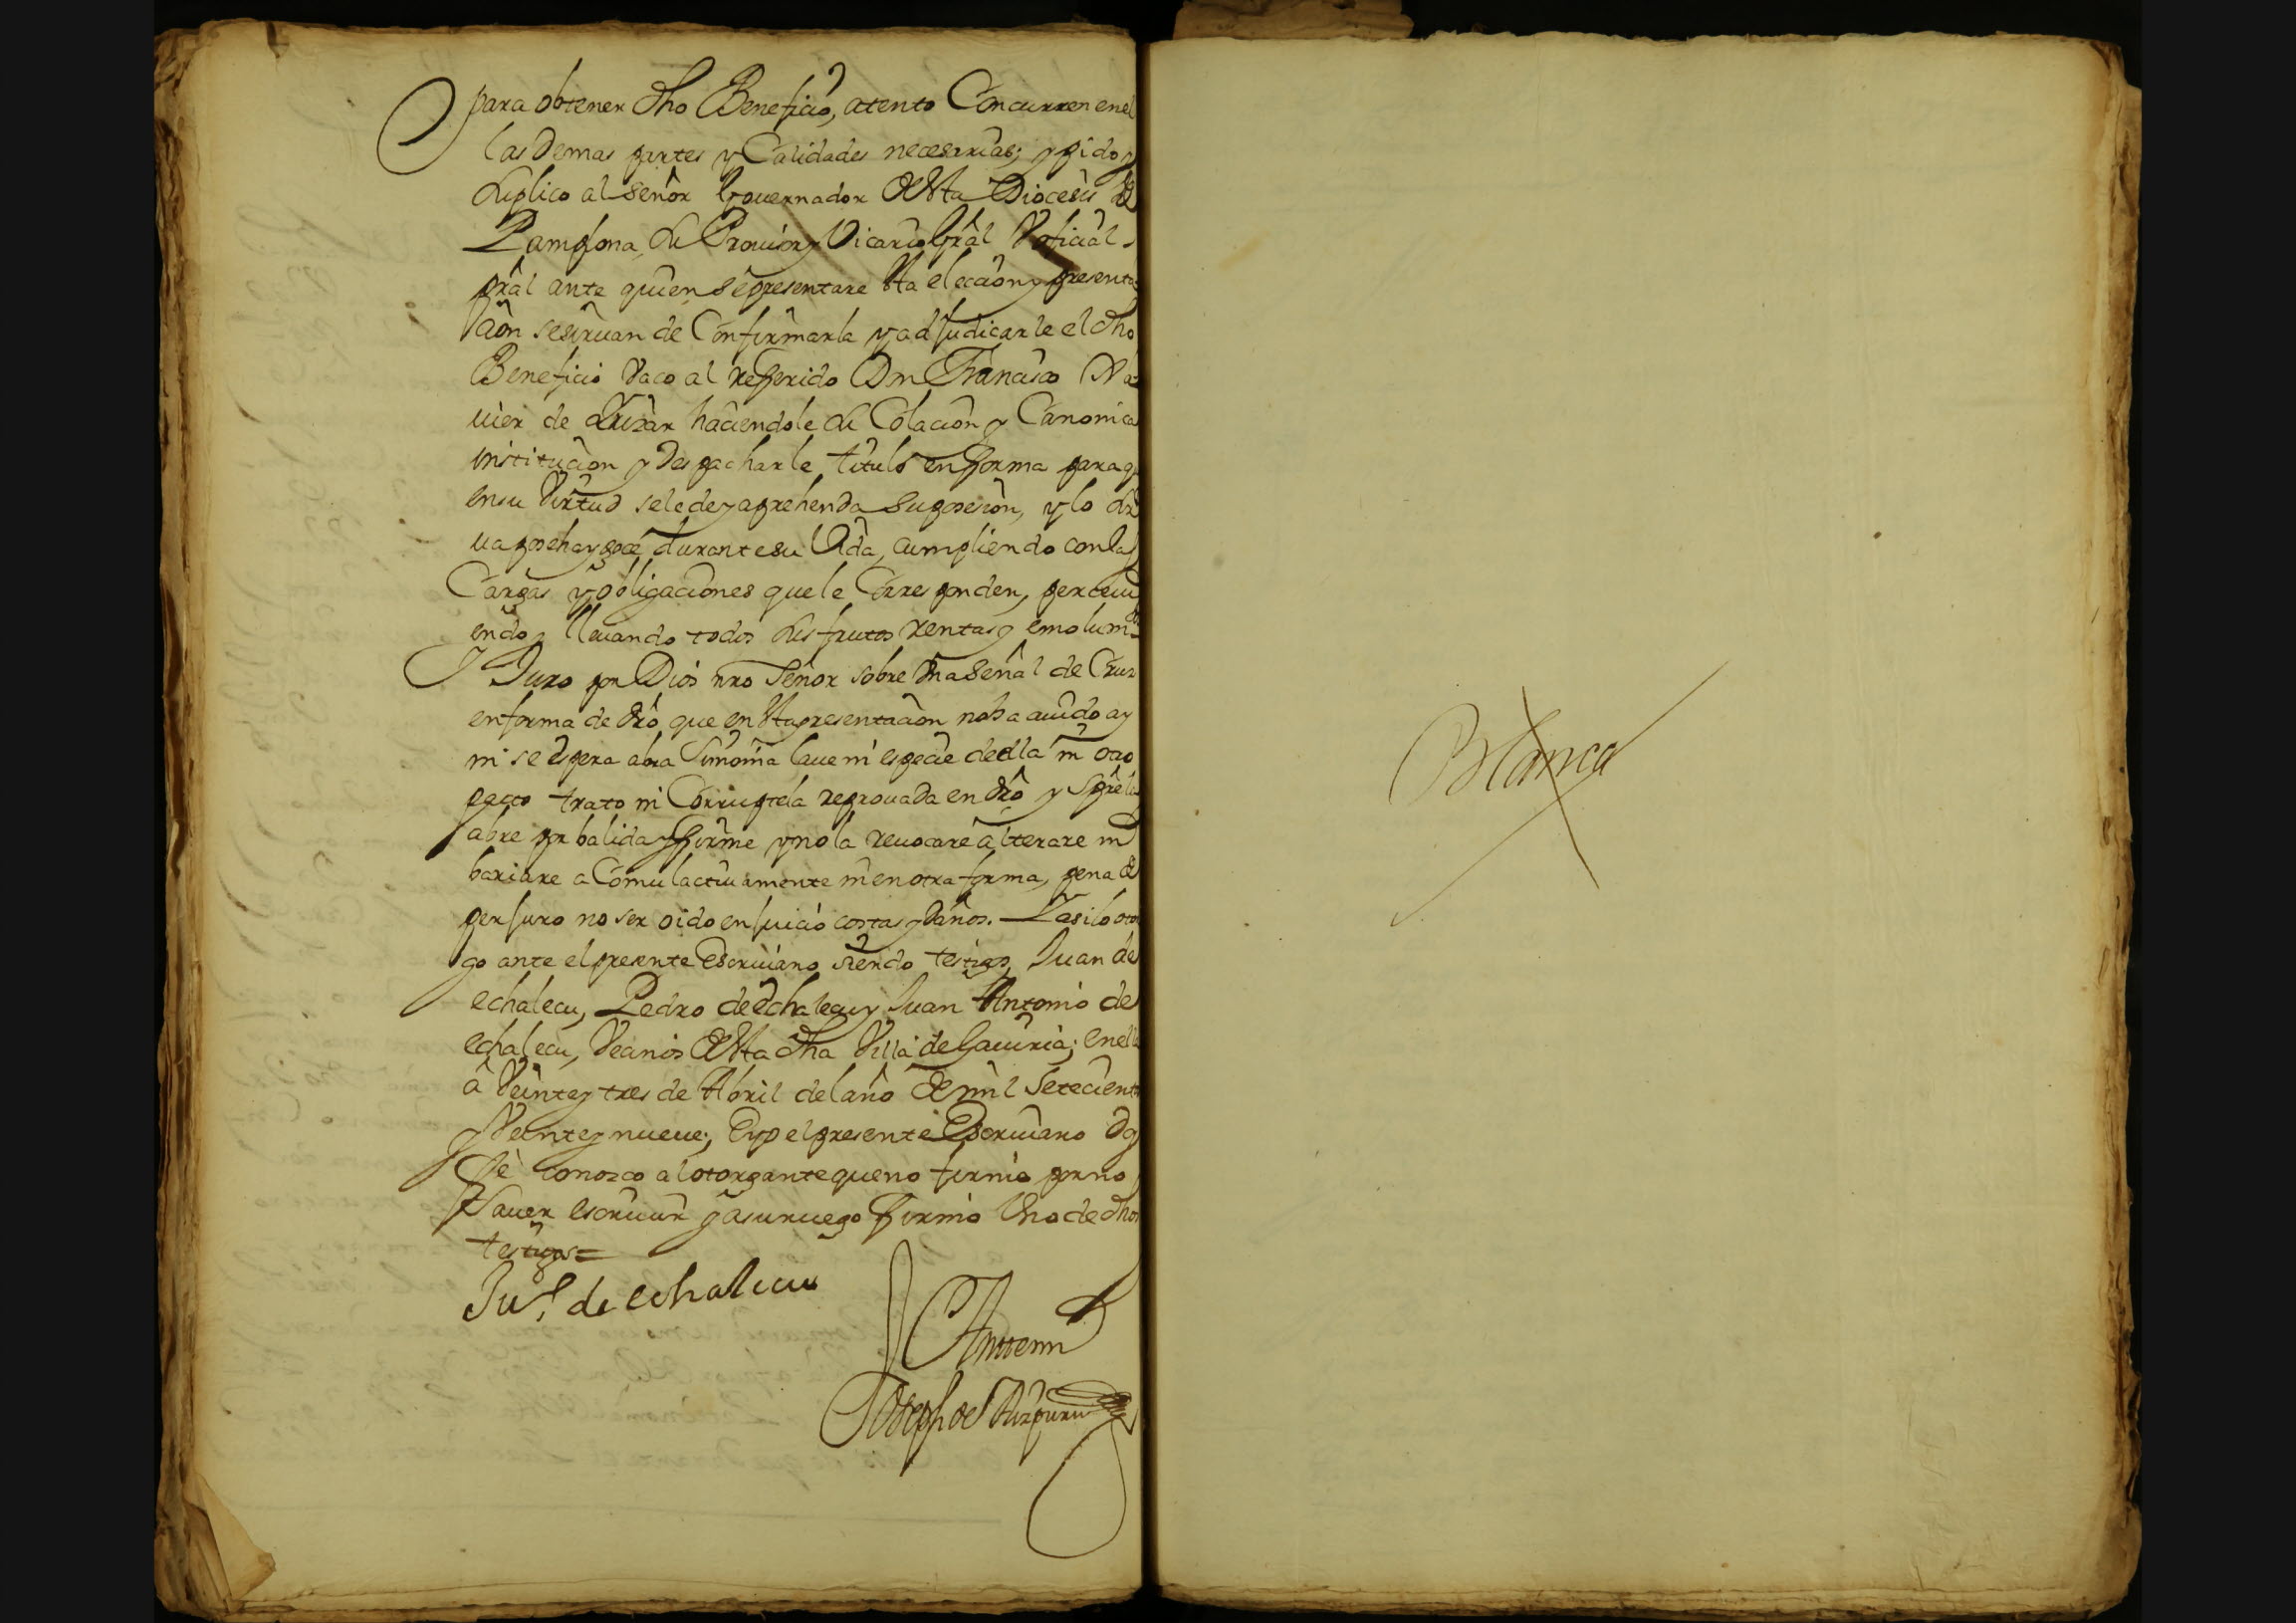 para obtener dho Beneficio, atento Concurren enel
las demas partes y Calidades necesarias; y pido y
suplico al señor Gouernador desta Diocesis de
Pamplona, su Prouisor y Vicario Gral V oficial
pral ante quien sepresentare esta eleccion y presenta
cion sesiruan de Confirmarla y adjudicarle el dho
Beneficio Vaco al refferido Dn Francisco Xa
uier de haciendole su Colacion y Canonica
institucion y despacharle titulo en fforma para q
ensu Virtud selede y aprehenda suposesion, y lo sir
ua poseha y goce durantesu Vida, cumpliendo conlas
Cargas y obligaciones quele Corresponden, perceui
endo y lleuando todos sus frutos rentas y emolumtos
Y Juro por Dios nro Señor sobre Vna señal de Cruz
enforma de dro, que en esta presentacion noha auido ay
ni se espera abra Simonia laue ni especie della ni otro
pacto trato ni Corruptela reprouada en dro y Spre la
abre por balida y ffirme y no la reuocare alterare ni
bariare a Comulactiuamente ni en otra forma, pena de
perjuro no ser oido en juicio costas y daños. Y asi lo otor
go ante el presente Escriuano siendo testigos Juan de
echalecu, Pedro de Echalecu y Juan Antonio de
echalecu, Vecinos desta dha Villa de Gauiria; enella
a Veinte y tres de Abril del año de mil Setecientos
y Veinte y nueue; Eyo el presente Escriuano doy
fè conozco al otorgante queno firmio por no
Sauer escriuir y asuruego ffirmio Vno de dhos
testigos=
Jua. de echalecu
Antemi
Joseph de Aizpuru
Blanca